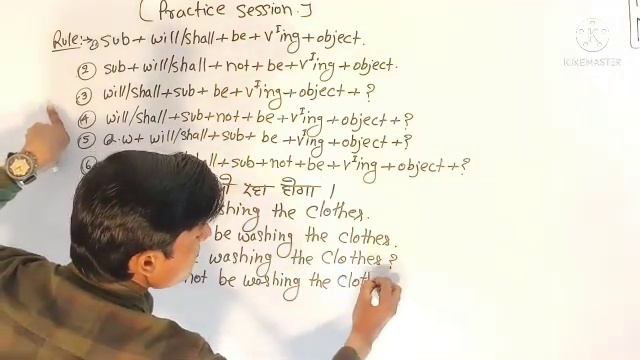 (Practice Session.)
Rule:→① Sub + will/shall + be + vᴵing + object.
② sub + will/shall + not + be + vᴵing + object.
③ will/shall + sub + be + vᴵing + object + ?
④ will/shall + sub + not + be + vᴵing + object + ?
⑤ Q.W + will/shall + sub + be + vᴵing + object + ?
⑥ + sub + not + be + vᴵing + object + ?
रहा होगा ।
the Clothes.
be washing the Clothes.
washing the Clothes ?
not be washing the
KINEMASTER